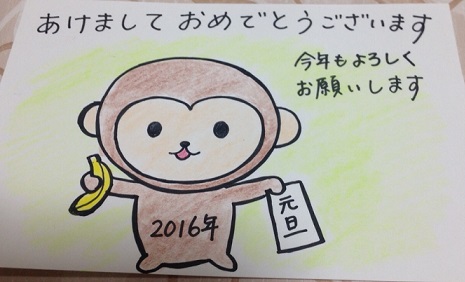 あけまして おめでとうございます
今年もよろしく
お願いします
2016年
元旦